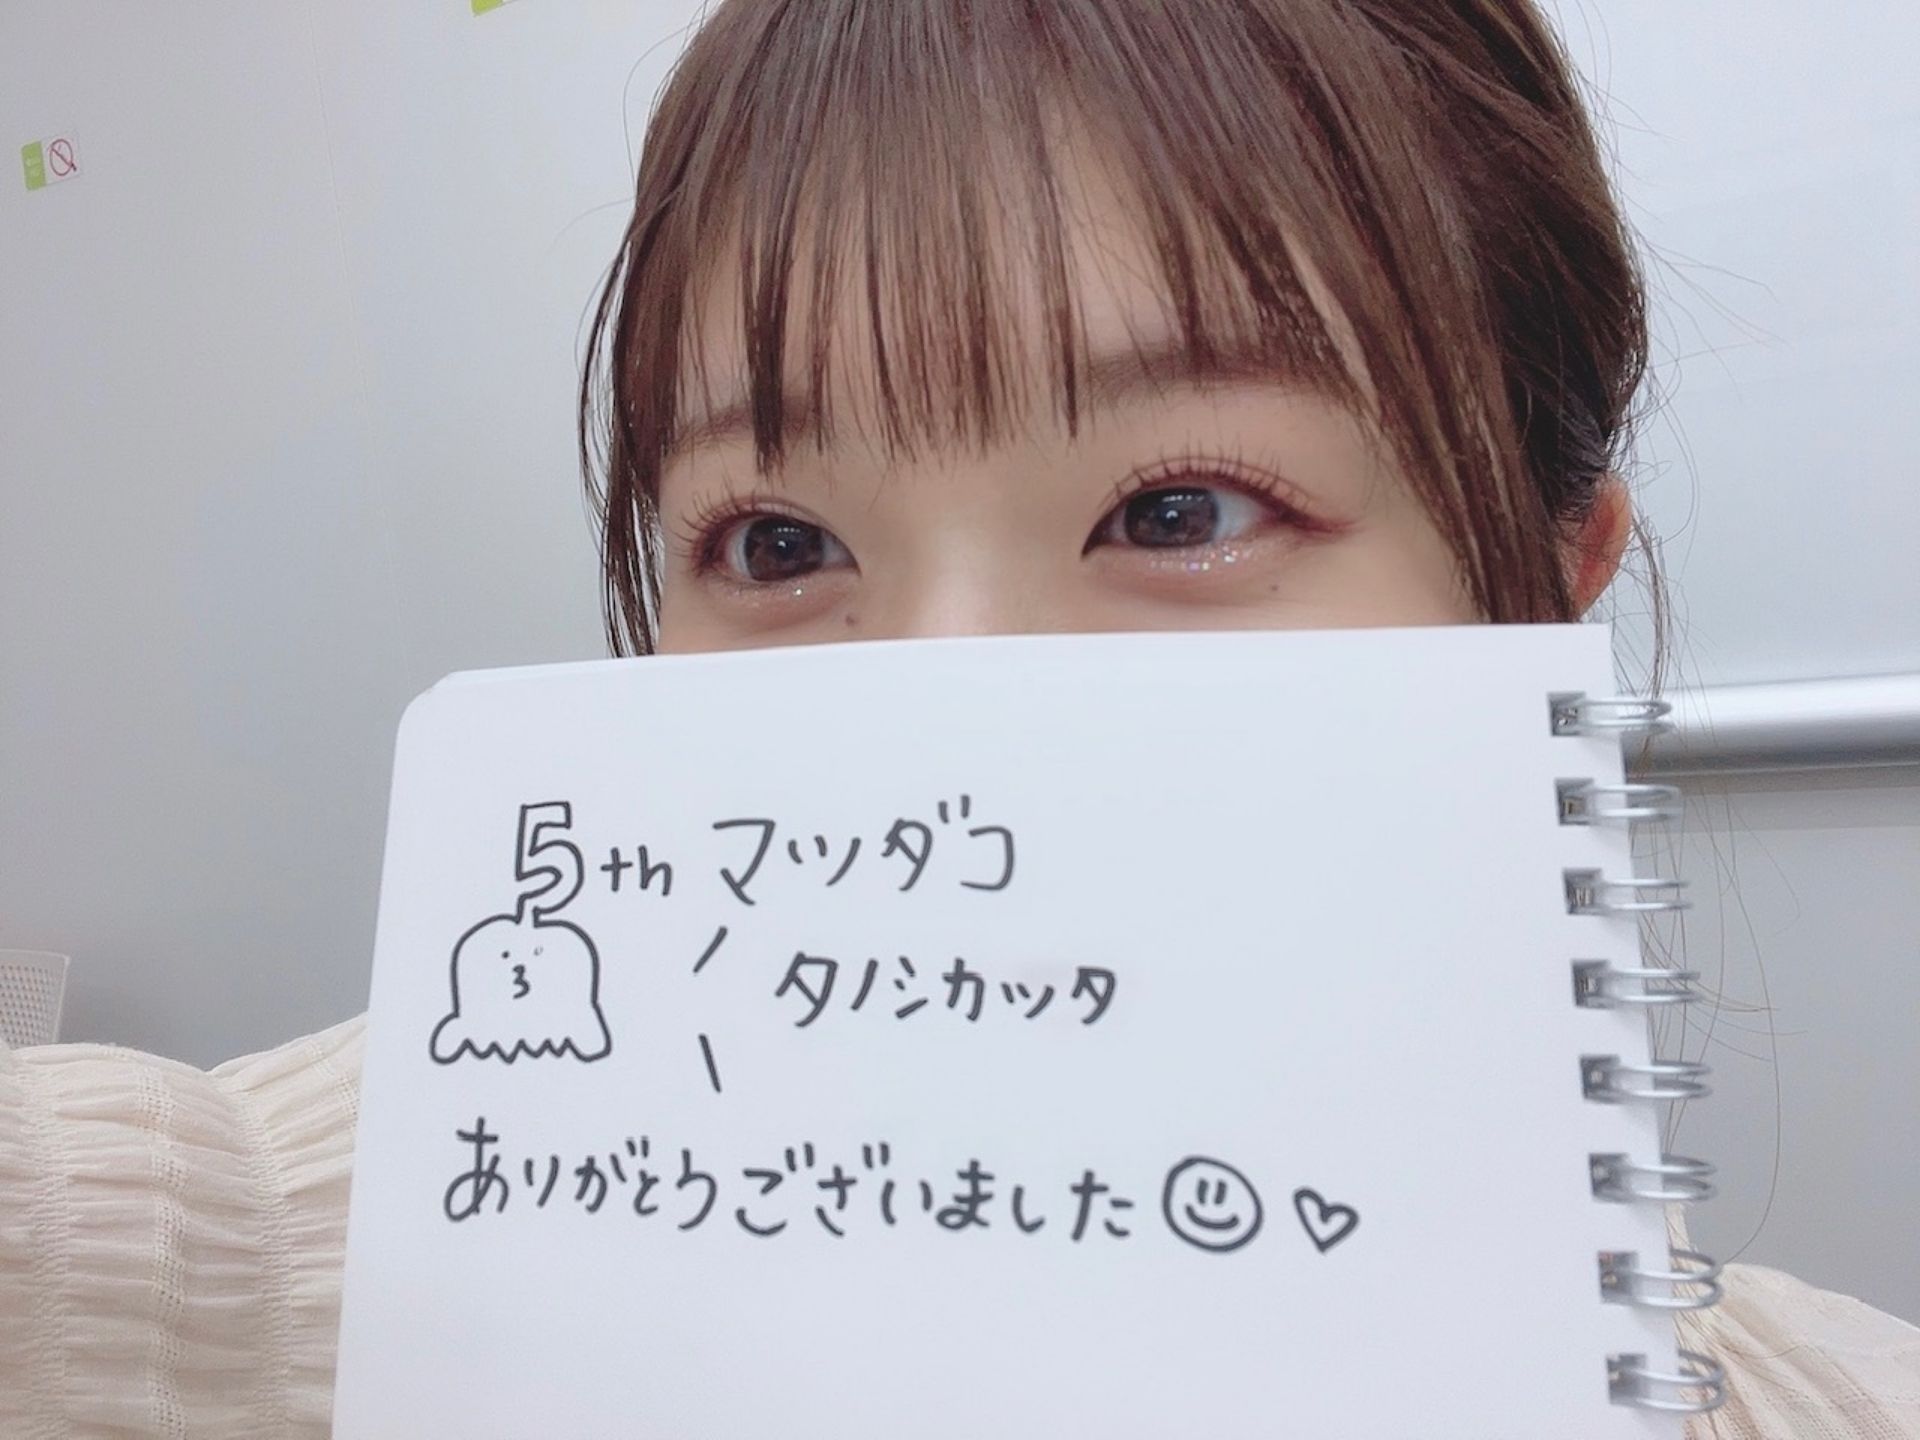 5th マツダコ
タノシカッタ
ありがとうございました